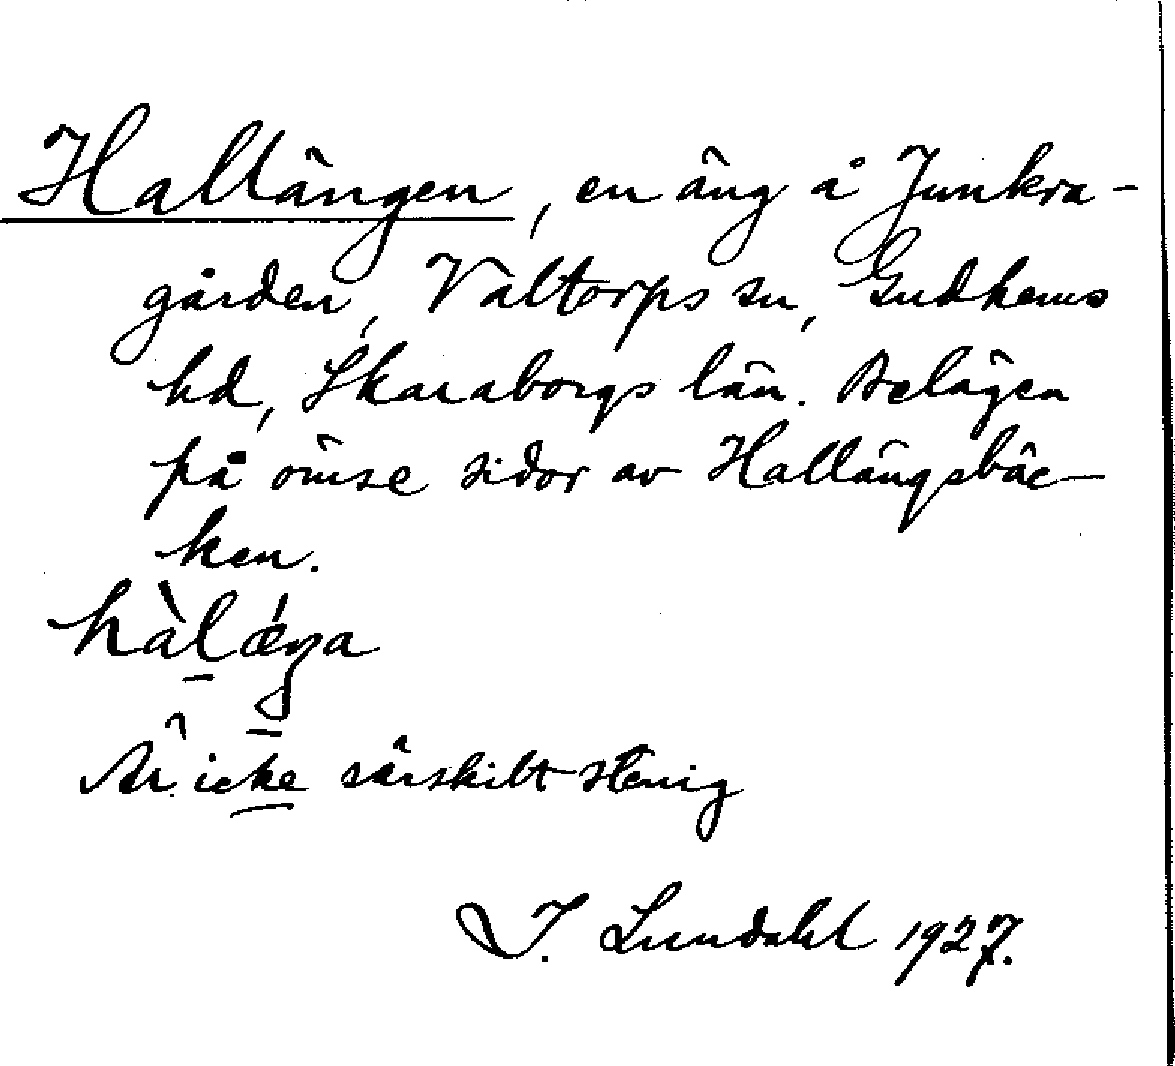 Hallängen, en äng å Junkra-
gården, Valtorps sn, Gudhems
hd, Skaraborgs län. Belägen
på ömse sidor av Hallängsbäc-
ken.
hàlǽŋa
Är icke särskilt stenig
I. Lundahl 1927.